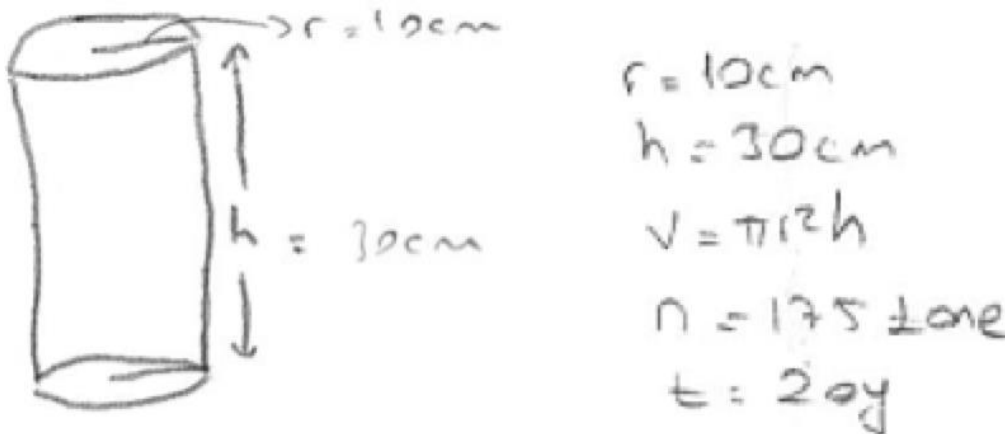 r = 10cm
h = 30cm
r = 10cm
h = 30cm
V = πr²h
n = 175 tane
t = 2 ay